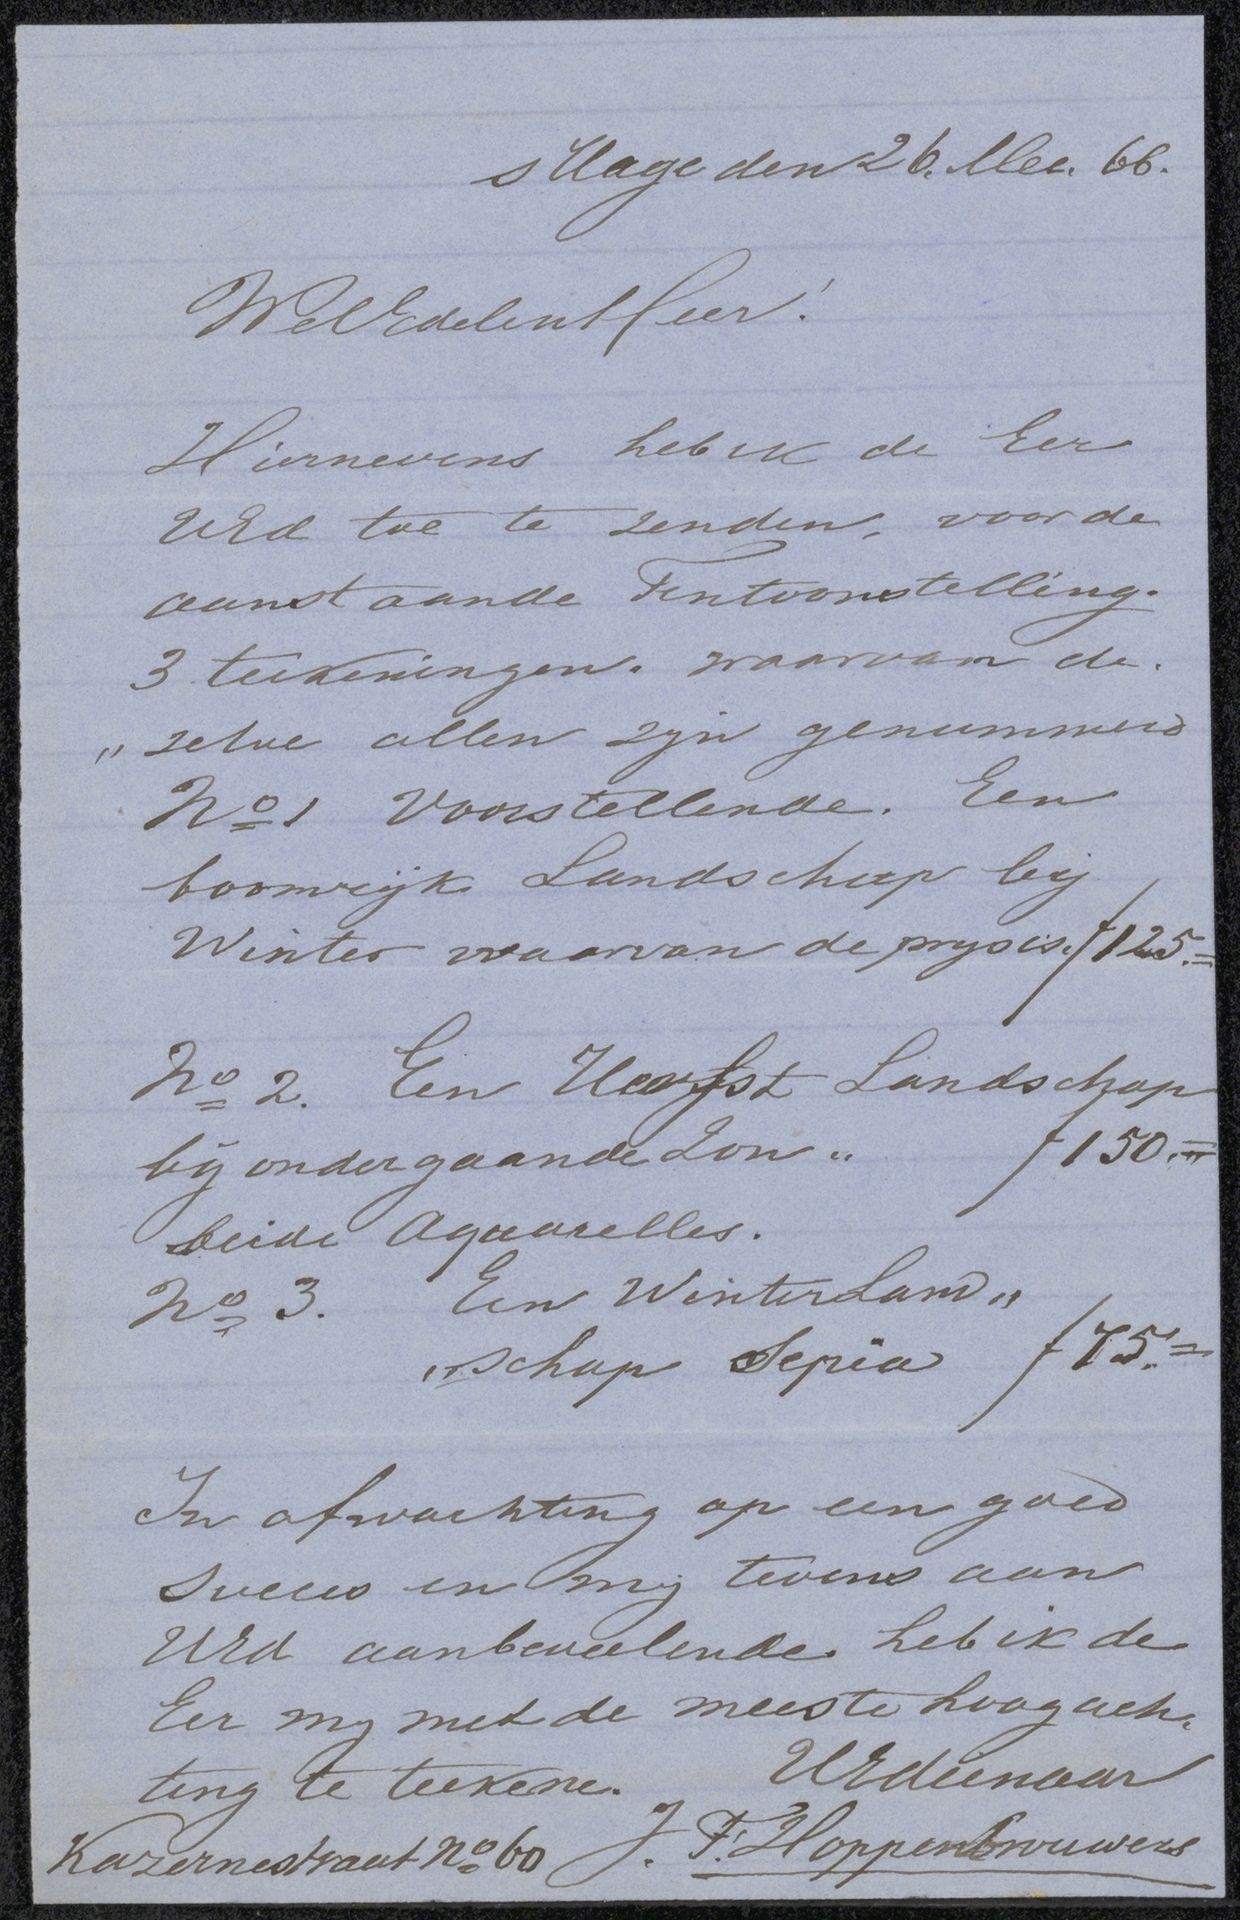 s Hage den 26. Mei. 66.
WelEdelen Heer!
Hiernevens heb ik de Eer
UEd toe te zenden, voor de
aanstaande Tentoonstelling.
3 teekeningen. waarvan de.
„ zelve allen zyn genummerd
No 1 Voorstellende. Een
boomrijk Landschap bij
Winter waarvan de prys is. f 125.=
No 2. Een Herfst Landschap
bij ondergaande Zon „ f 150.=
beide Aquarelles.
No 3. Een WinterLand„
„schap Sepia f 75.=
In afwachting op een goed
succes en mij tevens aan
UEd aanbeveelende. heb ik de
Eer mij met de meeste hoogach.
ting te teekene. UEdienaar
Kazernestraat No 60 J. F. Hoppenbrouwers